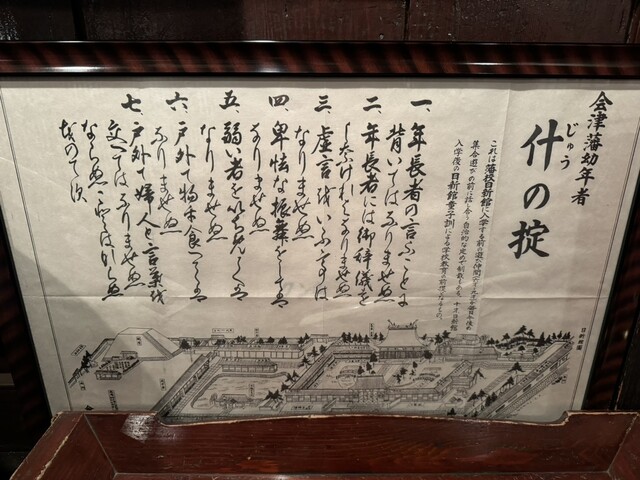 会津藩幼年者
じゅう
什の掟
これは藩校日新館に入学する前の
入学後の日新館童子訓による学校教育の前提
一、年長者の言ふことに
背いてはなりませぬ
二、年長者には御辞儀を
しなければなりませぬ
三、虚言をいふ事は
なりませぬ
四、卑怯な振舞をしては
なりませぬ
五、弱い者をいぢめては
なりませぬ
六、戸外で物を食べては
なりませぬ
七、戸外で婦人と言葉を
交へてはなりませぬ
ならぬことはならぬ
ものです
日新館図